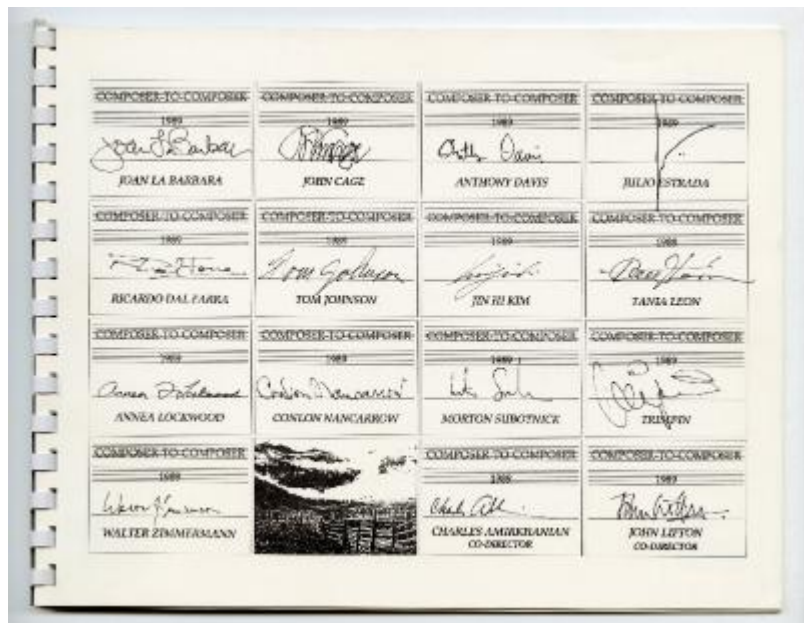 COMPOSER-TO-COMPOSER
1989
Joan La Barbara
JOAN LA BARBARA
COMPOSER-TO-COMPOSER
1989
JOHN CAGE
COMPOSER-TO-COMPOSER
1989
Anthony Davis
ANTHONY DAVIS
COMPOSER-TO-COMPOSER
1989
JULIO ESTRADA
COMPOSER-TO-COMPOSER
1989
RICARDO DAL FARRA
COMPOSER-TO-COMPOSER
1989
Tom Johnson
TOM JOHNSON
COMPOSER-TO-COMPOSER
1989
JIN HI KIM
COMPOSER-TO-COMPOSER
1989
TANIA LEON
COMPOSER-TO-COMPOSER
1989
Annea Lockwood
ANNEA LOCKWOOD
COMPOSER-TO-COMPOSER
1989
Conlon Nancarrow
CONLON NANCARROW
COMPOSER-TO-COMPOSER
1989
MORTON SUBOTNICK
COMPOSER-TO-COMPOSER
1989
TRIMPIN
COMPOSER-TO-COMPOSER
1989
WALTER ZIMMERMANN
COMPOSER-TO-COMPOSER
1989
CHARLES AMIRKHANIAN
CO-DIRECTOR
COMPOSER-TO-COMPOSER
1989
JOHN LIFTON
CO-DIRECTOR